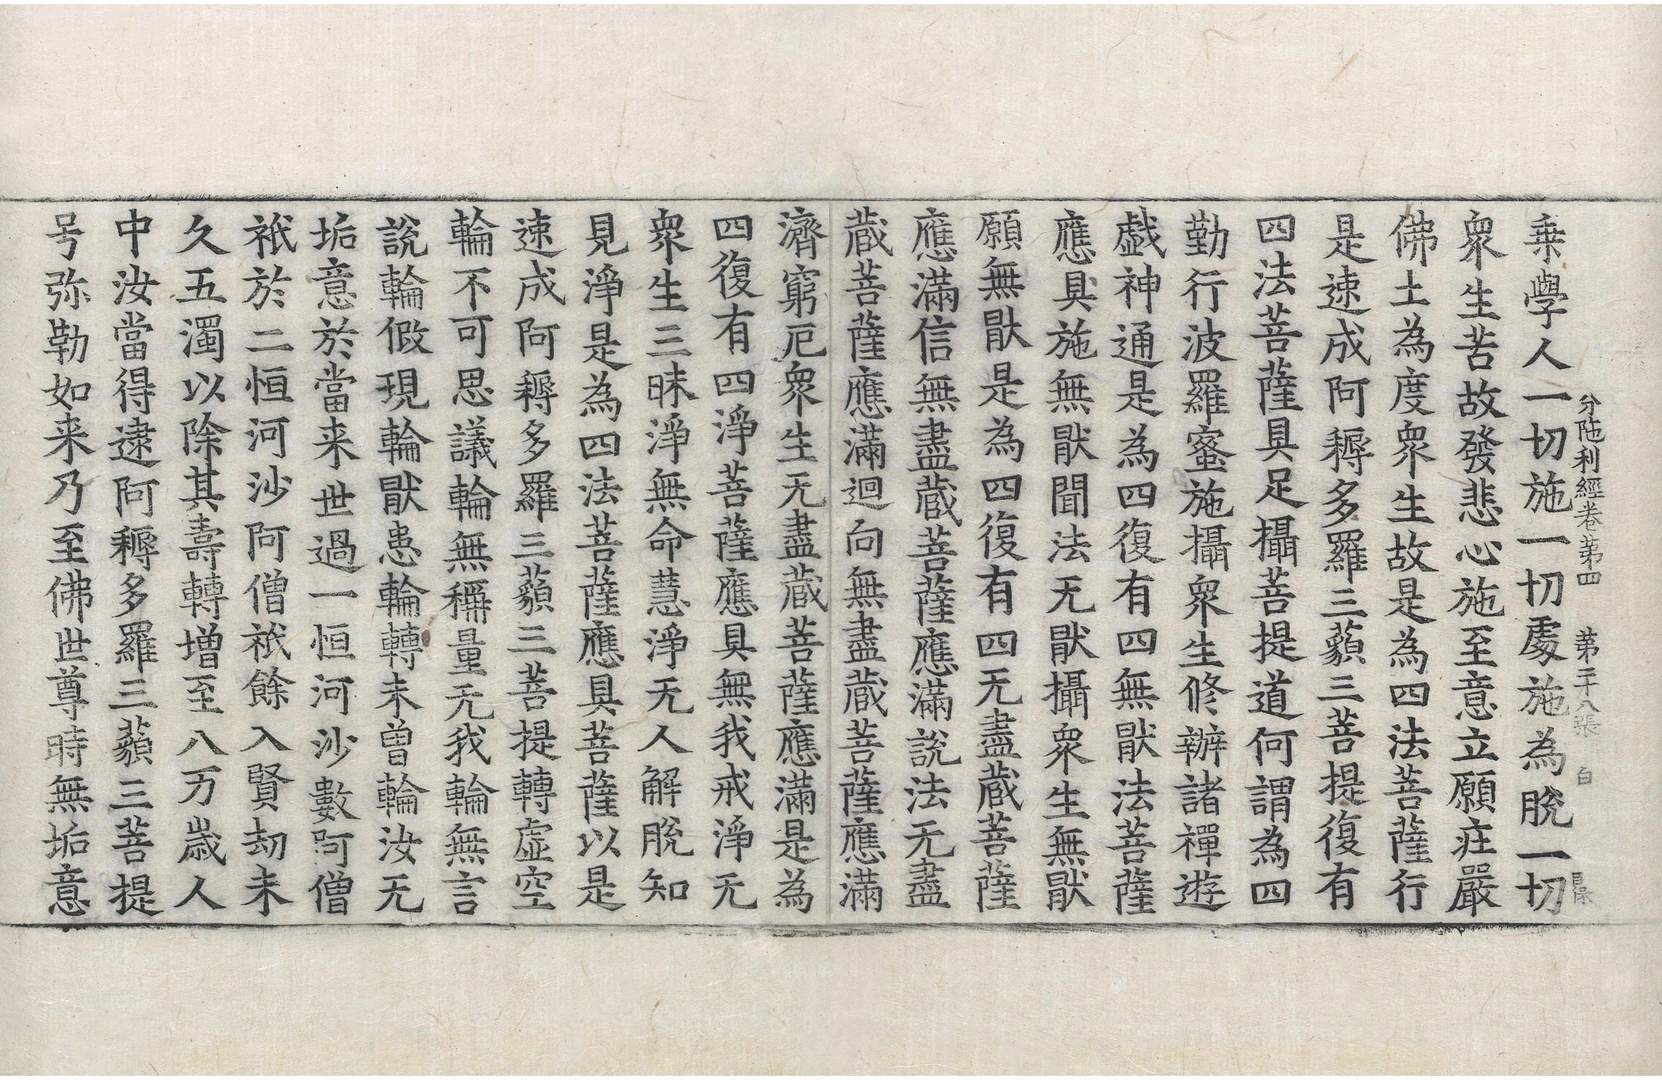 乘學人一切施一切處施為脫一切
分陁利經卷第四　第二十八張　白
眾生苦故發悲心施至意立願莊嚴
佛土為度眾生故是為四法菩薩行
是速成阿耨多羅三藐三菩提復有
四法菩薩具足攝菩提道何謂為四
勤行波羅蜜施攝眾生修辦諸禪遊
戲神通是為四復有四無猒法菩薩
應具施無猒聞法无猒攝眾生無猒
願無猒是為四復有四无盡藏菩薩
應滿信無盡藏菩薩應滿說法无盡
藏菩薩應滿迴向無盡藏菩薩應滿
濟窮厄眾生无盡藏菩薩應滿是為
四復有四淨菩薩應具無我戒淨无
眾生三昧淨無命慧淨无人解脫知
見淨是為四法菩薩應具菩薩以是
速成阿耨多羅三藐三菩提轉虛空
輪不可思議輪無稱量无我輪無言
說輪假現輪猒患輪轉未曾輪汝无
垢意於當来世過一恒河沙數阿僧
祇於二恒河沙阿僧祇餘入賢劫未
久五濁以除其壽轉增至八万歲人
中汝當得逮阿耨多羅三藐三菩提
号弥勒如来乃至佛世尊時無垢意